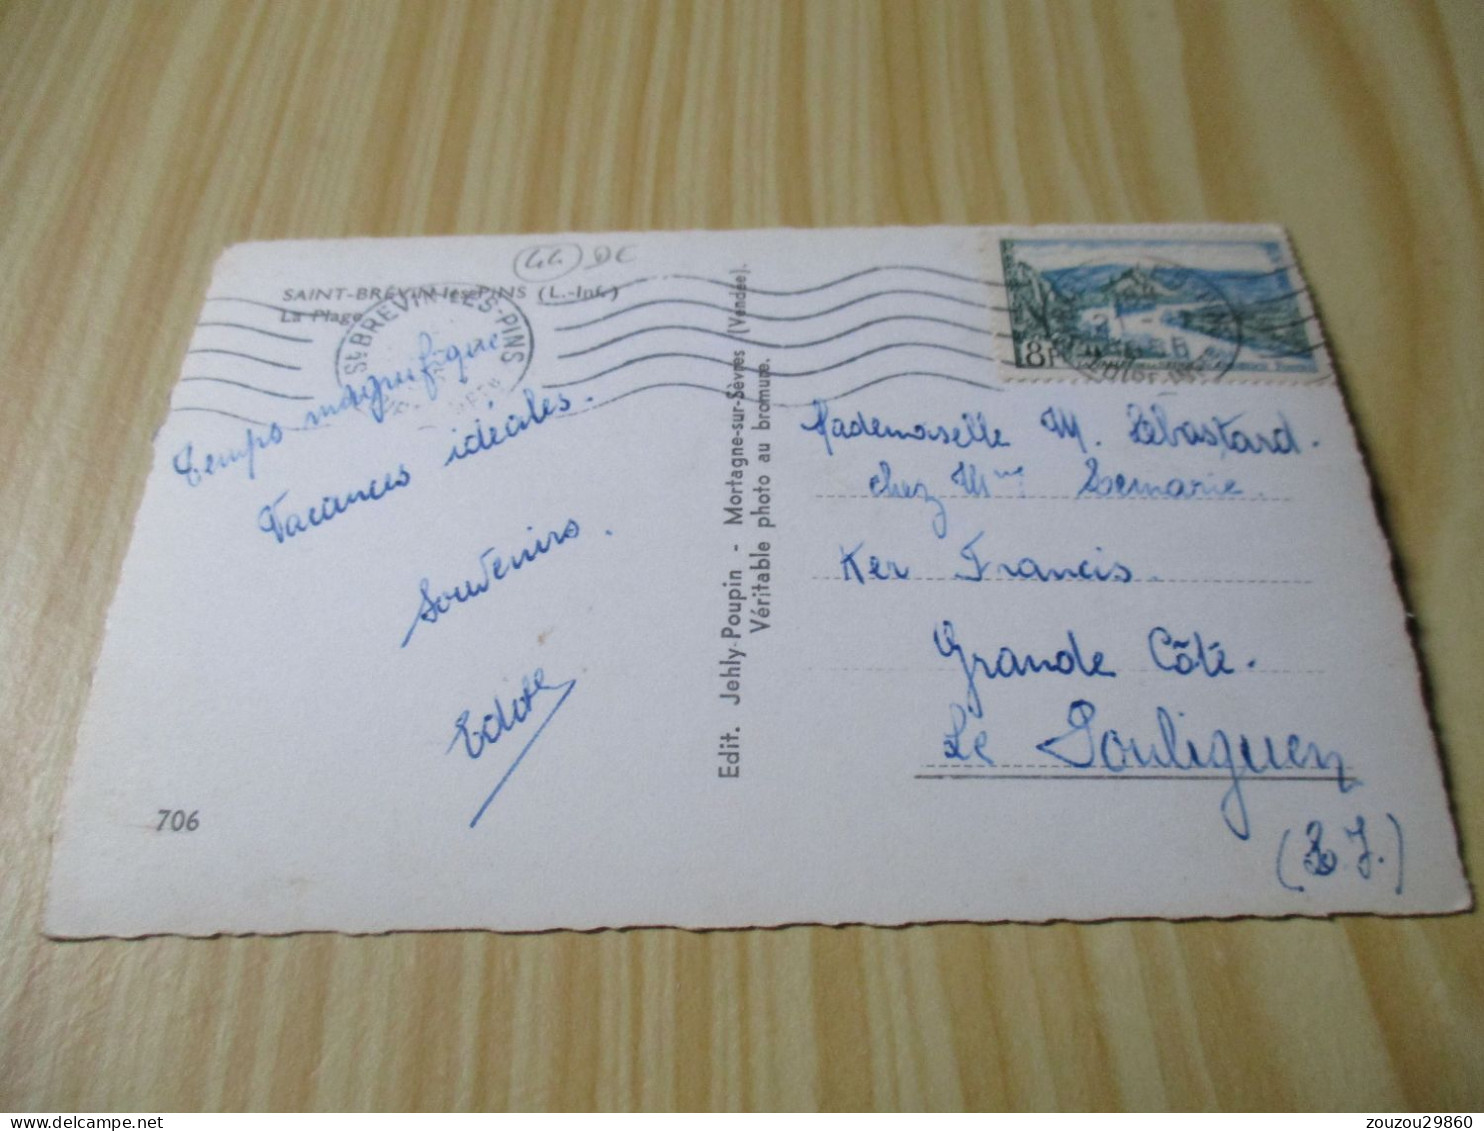 44 DE
SAINT-BRÉVIN-les-PINS (L.-Inf.)
La Plage
St BREVIN-LES-PINS
Temps magnifique
Vacances idéales.
Souvenirs.
Edith
706
Edit. Jehly-Poupin - Mortagne-sur-Sèvres (Vendée).
Véritable photo au bromure.
8F
Mademoiselle M. Lebastard.
chez Mme Locmarie.
Ker Francis.
Grande Côte.
Le Pouliguen
zouzou29860